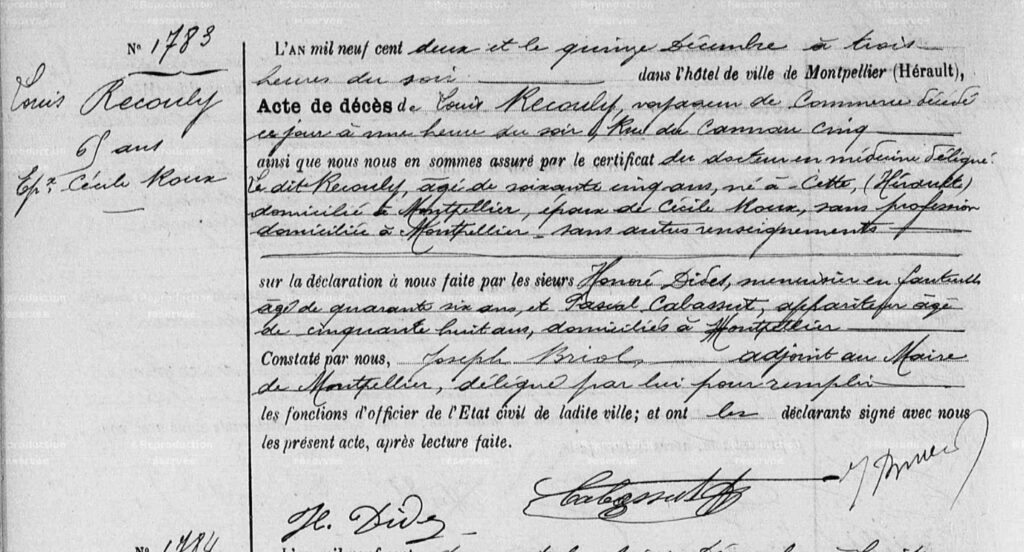 Nº 1783
Louis Recouly
65 ans
Epx. Cécile Roux
L'AN mil neuf cent deux et le quinze Décembre à trois
heures du soir dans l'hôtel de ville de Montpellier (Hérault),
Acte de décès de Louis Recouly, voyageur de Commerce décédé
ce jour à une heure du soir, Rue du Cannau Cinq
ainsi que nous nous en sommes assuré par le certificat du docteur en médecine délégué.
Le dit Recouly, âgé de soixante cinq ans, né à Cette, (Hérault)
domicilié à Montpellier, époux de Cécile Roux, sans profession
domiciliée à Montpellier - sans autres renseignements
sur la déclaration à nous faite par les sieurs Honoré Dides, menuisier en fauteuils
âgé de quarante six ans, et Pascal Cabassut, appariteur âgé
de cinquante huit ans, domiciliés à Montpellier
Constaté par nous, Joseph Briol, adjoint au Maire
de Montpellier, délégué par lui pour remplir
les fonctions d'officier de l'Etat civil de ladite ville; et ont les déclarants signé avec nous
les présent acte, après lecture faite.
Cabassut
H. Dides
Nº 1784